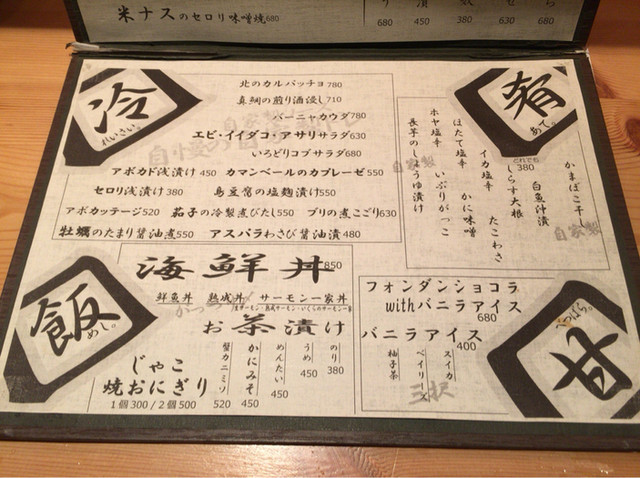 米ナスのセロリ味噌焼680
680
450
380
630
680
冷
れいさい。
北のカルパッチョ780
真鯛の煎り酒浸し710
バーニャカウダ780
エビ・イイダコ・アサリサラダ630
いろどりコブサラダ680
アボカド浅漬け450 カマンベールのカプレーゼ550
セロリ浅漬け380 島豆腐の塩麹漬け550
アボカッテージ520 茄子の冷製煮びたし550 ブリの煮こごり630
牡蠣のたまり醤油煮550 アスパラわさび醤油漬480
肴
あて。
どれでも
380
かまぼこ干し
白魚汁漬
しらす大根
たこわさ
イカ塩辛
かに味噌
ほたて塩辛
いぶりがっこ
ホヤ塩辛
長芋のしょうゆ漬け
自家製
自家製
飯
めし。
海鮮丼850
鮮魚丼 熟成丼 サーモン一家丼
お茶漬け
のり
380
うめ
450
めんたい
450
かにみそ
450
蟹カニミソ
520
じゃこ
焼おにぎり
1個300/2個500
フォンダンショコラ
withバニラアイス
680
バニラアイス
400
スイカ
ベイリーズ
柚子茶
三択
甘